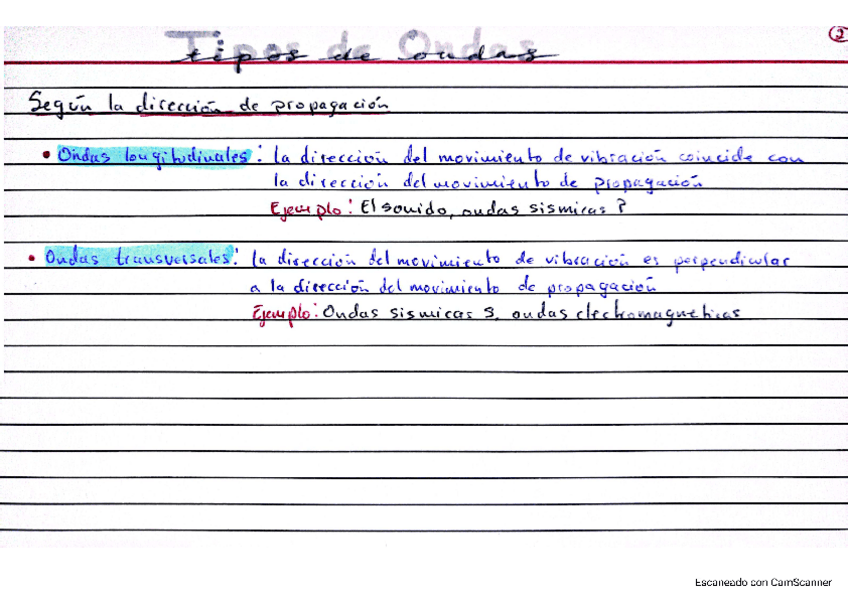 Tipos de Ondas
2
Según la dirección de propagación
• Ondas longitudinales: la dirección del movimiento de vibración coincide con
la dirección del movimiento de propagación
Ejemplo: El sonido, ondas sismicas P
• Ondas transversales: la dirección del movimiento de vibración es perpendicular
a la dirección del movimiento de propagación
Ejemplo: Ondas sismicas S, ondas electromagneticas
Escaneado con CamScanner